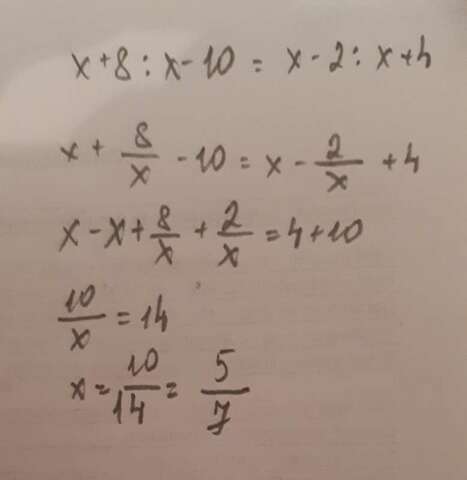 x+8:x-10=x-2:x+4
x+8/x-10=x-2/x+4
x-x+8/x+2/x=4+10
10/x=14
x=10/14=5/7